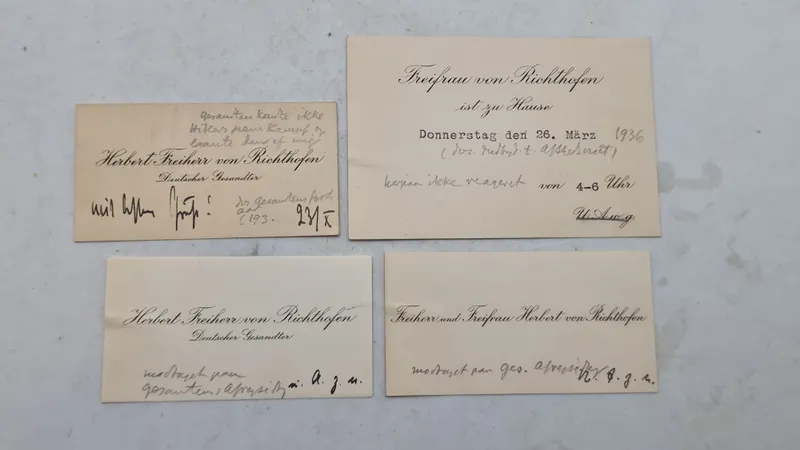 gesanten kente ikke
Hitlers mein Kampf og
Herbert Freiherr von Richthofen
Deutscher Gesandter
mit besten Gruß!
23/X
(193.
Freifrau von Richthofen
ist zu Hause
Donnerstag den 26. März 1936
ikke reageret von 4-6 Uhr
U.A.w.g.
Herbert Freiherr von Richthofen
Deutscher Gesandter
modtaget paa
gesantens Afrejsedag u. A. z. n.
Freiherr und Freifrau Herbert von Richthofen
modtaget paa ges. Afrejsedag